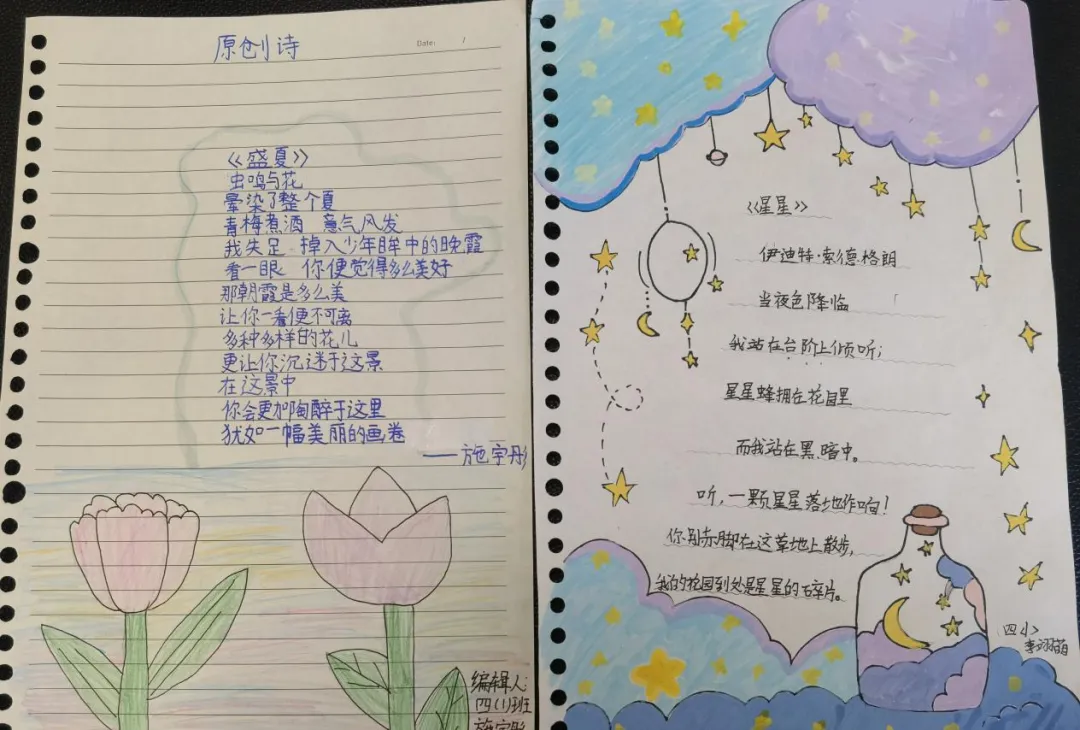 原创诗
Date: /
《盛夏》
虫鸣与花
晕染了整个夏
青梅煮酒 意气风发
我失足 掉入少年眸中的晚霞
看一眼 你便觉得多么美好
那朝霞是多么美
让你一看便不可离
多种多样的花儿
更让你沉迷于这景
在这景中
你会更加陶醉于这里
犹如一幅美丽的画卷
——施宇彤
编辑人:
四(1)班
施宇彤
《星星》
伊迪特·索德格朗
当夜色降临
我站在台阶上倾听;
星星蜂拥在花园里
而我站在黑暗中。
听,一颗星星落地作响!
你别赤脚在这草地上散步,
我的花园到处是星星的碎片。
四小
李翊萌